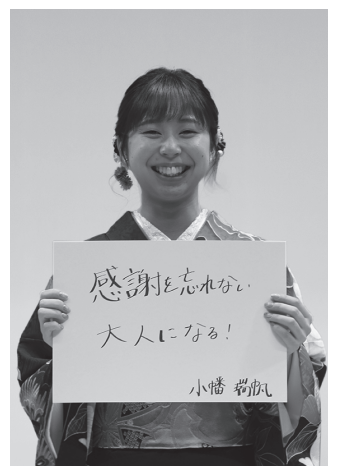 感謝を忘れない
大人になる!
小幡 瑞帆